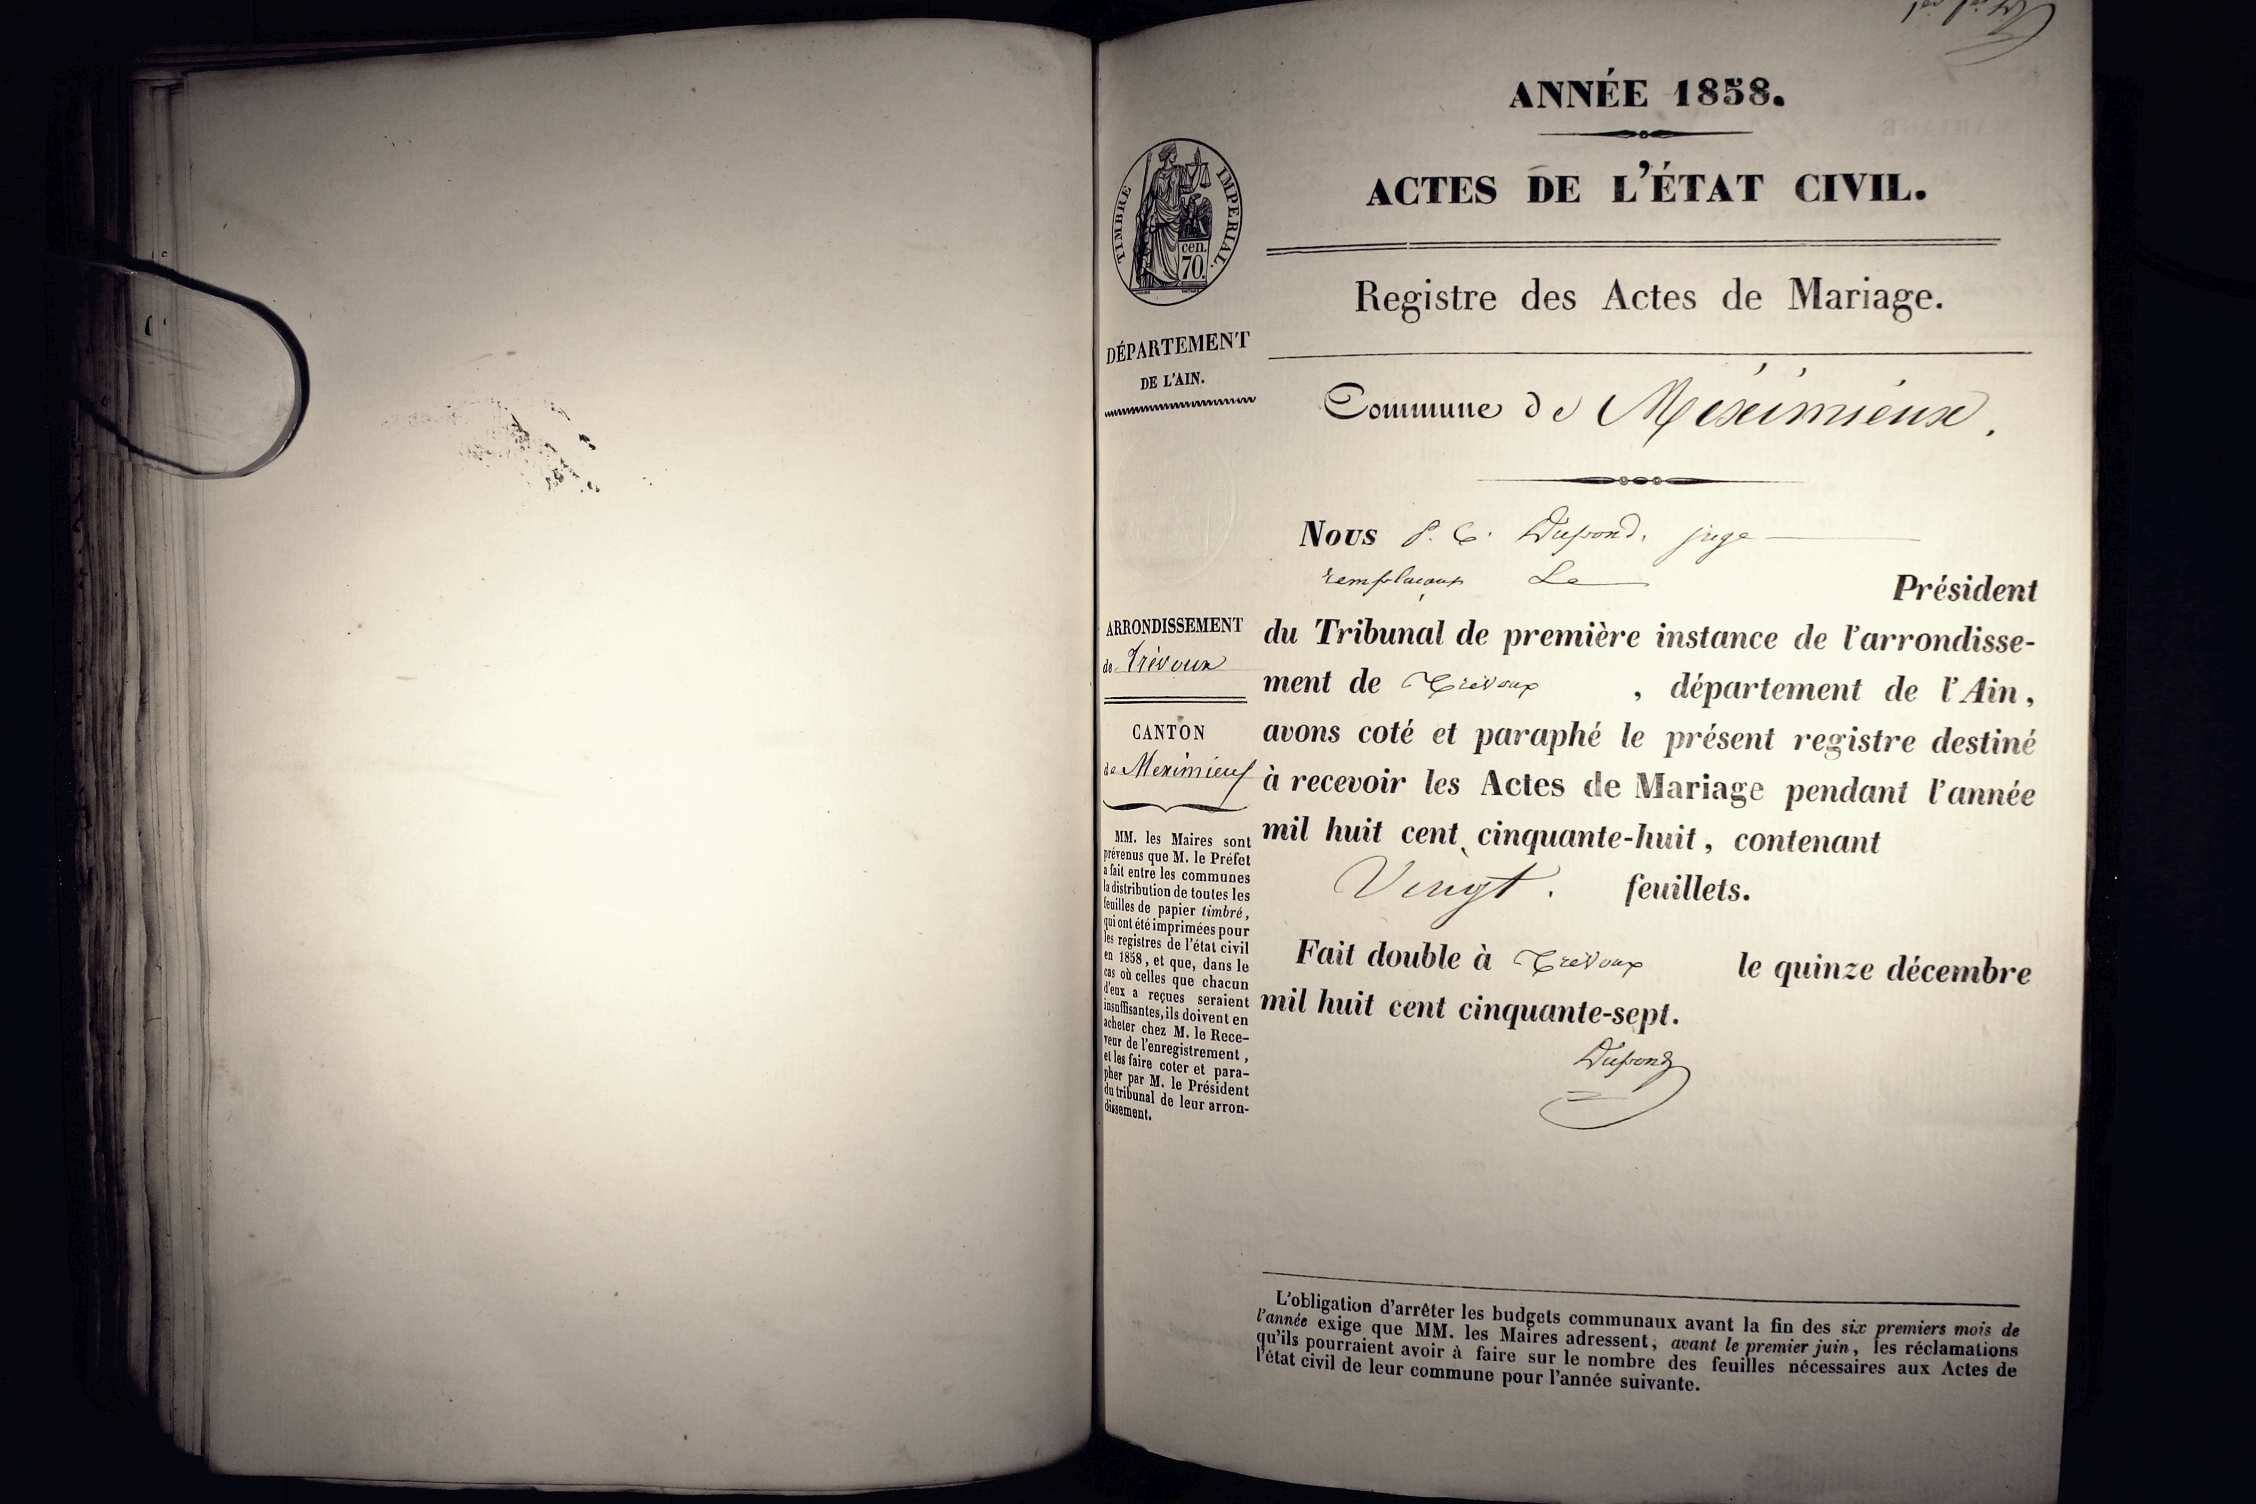 ANNÉE 1858.
ACTES DE L'ÉTAT CIVIL.
TIMBRE IMPERIAL.
cen.
70.
Registre des Actes de Mariage.
DÉPARTEMENT
DE L'AIN.
Commune de Méximieux.
Nous P. C. Dupond, juge
remplaçant Le Président
du Tribunal de première instance de l'arrondisse-
ment de Trévoux, département de l'Ain,
avons coté et paraphé le présent registre destiné
à recevoir les Actes de Mariage pendant l'année
mil huit cent cinquante-huit, contenant
Vingt. feuillets.
Fait double à Trévoux le quinze décembre
mil huit cent cinquante-sept.
Dupond
ARRONDISSEMENT
de Trévoux
CANTON
de Meximieux
MM. les Maires sont
prévenus que M. le Préfet
a fait entre les communes
la distribution de toutes les
feuilles de papier timbré,
qui ont été imprimées pour
les registres de l'état civil
en 1858, et que, dans le
cas où celles que chacun
d'eux a reçues seraient
insuffisantes, ils doivent en
acheter chez M. le Rece-
veur de l'enregistrement,
et les faire coter et para-
pher par M. le Président
du tribunal de leur arron-
dissement.
L'obligation d'arrêter les budgets communaux avant la fin des six premiers mois de
l'année exige que MM. les Maires adressent, avant le premier juin, les réclamations
qu'ils pourraient avoir à faire sur le nombre des feuilles nécessaires aux Actes de
l'état civil de leur commune pour l'année suivante.